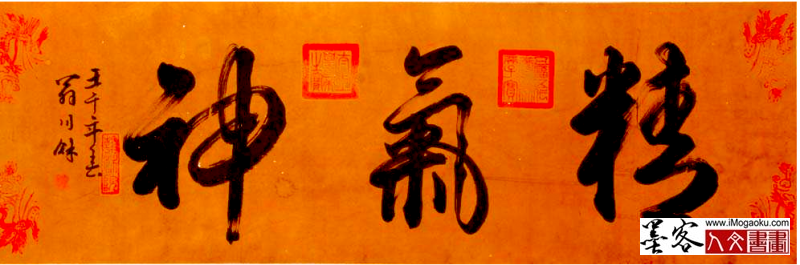 精氣神
壬午年
翁川
墨客
www.iMogaoku.com
人文書畫